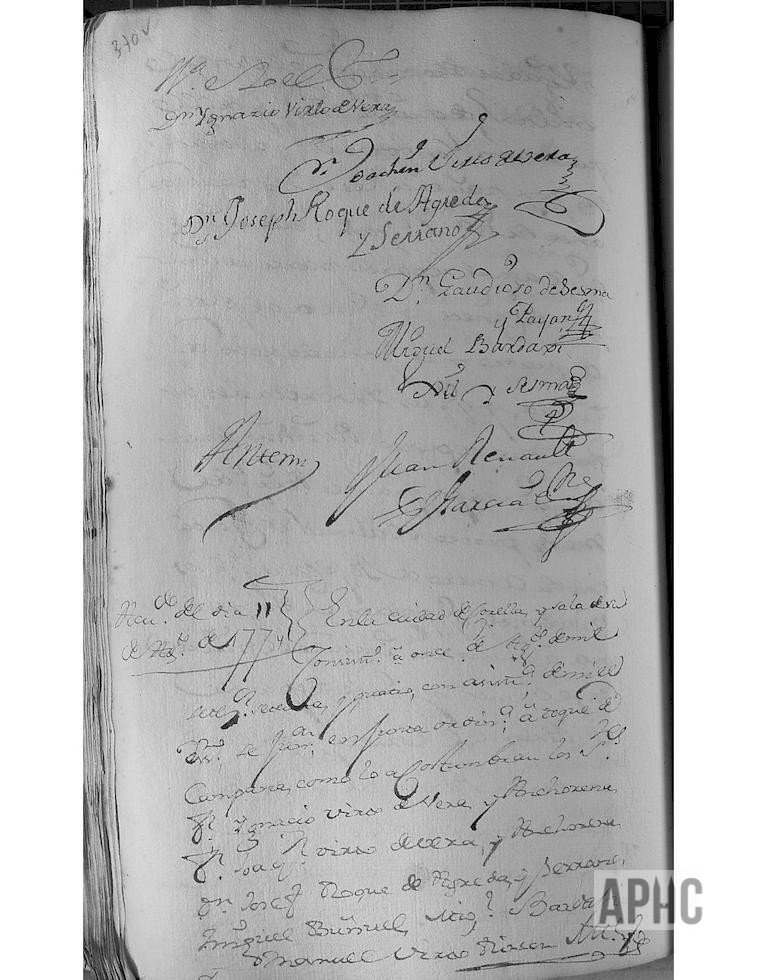 370v
Dn Ygnazio Virto de Vera
Dn Joachin Virto de Vera
Dn Joseph Roque de Agreda
y Serrano
Dn Gaudioso de Sesma
y Payan
Miguel Bardaxi
Gil y Sesma
Antemi Juan Renault
Garcia
Acudo del dia 11 En la ciudad de Corella, y sala de su
de Agto de 1774
Consistto a once de Agto de mil
setezs settenta, y quatro, con asistta del mill
en forma ordina a toque de
Campana, como lo acostumbran los Sres
Dn Ygnacio Virto de Vera, y Anchorena
Dn Joaqn Virto de Vera, y Anchorena
Dn Josef Roque de Agreda, y Serrano,
Miguel Buñuel, Migl Bardaxi
Manuel Virto
APHC